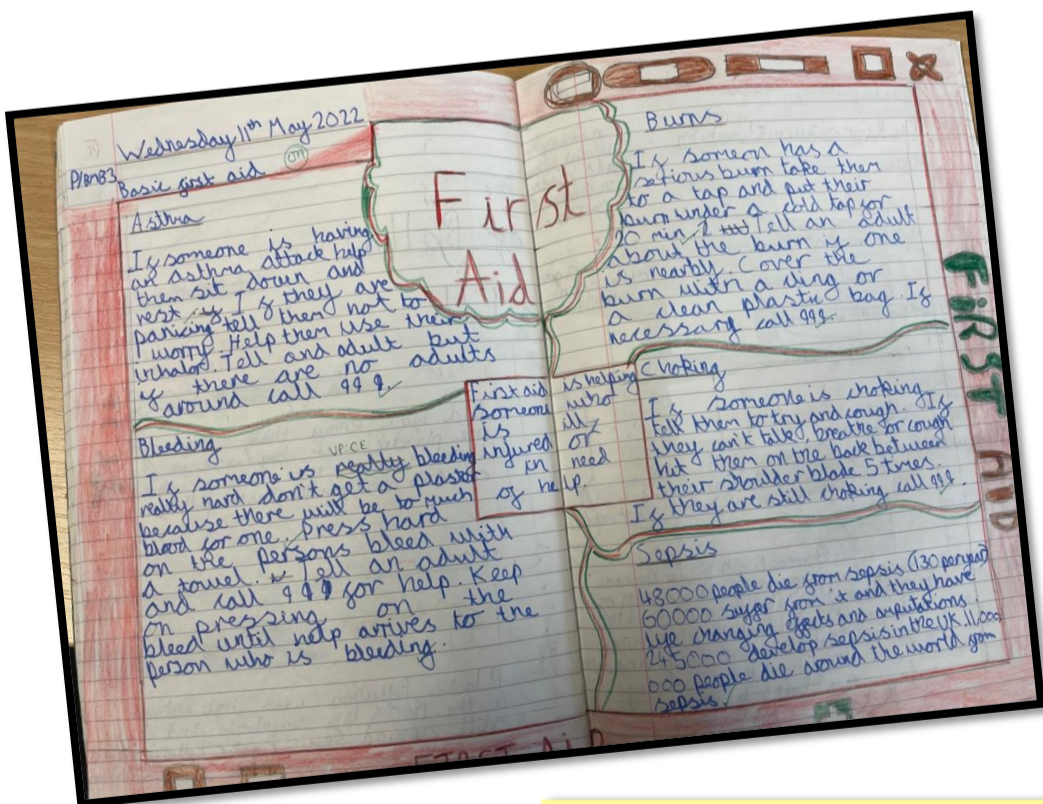 Wednesday 11th May 2022
P/BMB3
Basic first aid
Asthma
If someone is having
an asthma attack help
them sit down and
rest. If they are
panizing tell them not to
worry. Help them use their
inhalor. Tell and adult but
if there are no adults
around call 999.
Bleeding
VPICE
If someone is really bleeding
really hard don't get a plastor
because there will be to much
blood for one. press hard
on the persons bleed with
a towel. Tell an adult
and call 999 for help. Keep
on pressing on the
bleed until help arrives to the
person who is bleeding.
First
Aid
First aid is helping
someone who
is ill,
injured or
in need
of help.
Burns
If someon has a
serious burn take them
to a tap and put their
burn under a cold tap for
min Tell an adult
about the burn if one
is nearby. Cover the
burn with a cling or
a clean plastic bag If
necessary call 999.
Choking
If someone is choking
tell them to try and cough. If
they can't talk, breathe or cough
hit them on the back between
their shoulder blade 5 times.
If they are still choking call 999.
Sepsis
48000 people die from sepsis (130 per
60000 suffer from it and they have
life changing effects and amputations.
245000 develop sepsis in the UK. 11,000
000 people die around the world from
sepsis.
FIRST
AID
FIRST AID